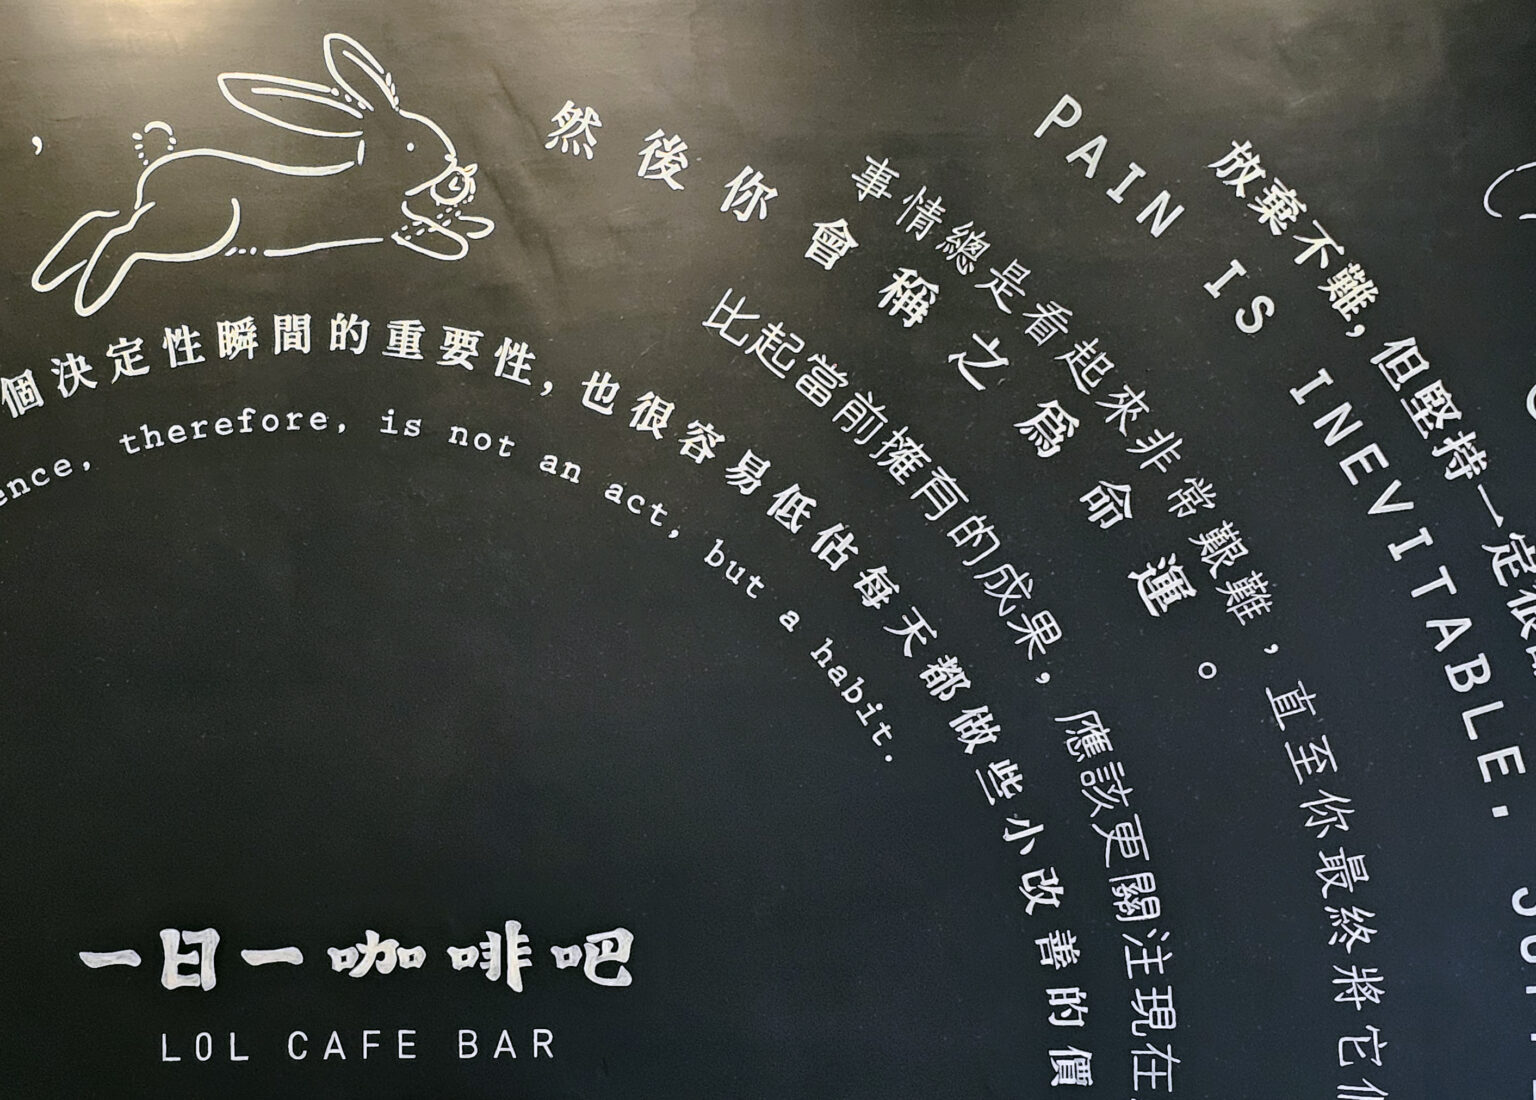 ，然後你會稱之為命運。
個決定性瞬間的重要性，也很容易低估每天都做些小改善的價
ence, therefore, is not an act, but a habit.
比起當前擁有的成果，應該更關注現在
事情總是看起來非常艱難，直至你最終將它
PAIN IS INEVITABLE.
放棄不難，但堅持一定很
一日一咖啡吧
LOL CAFE BAR